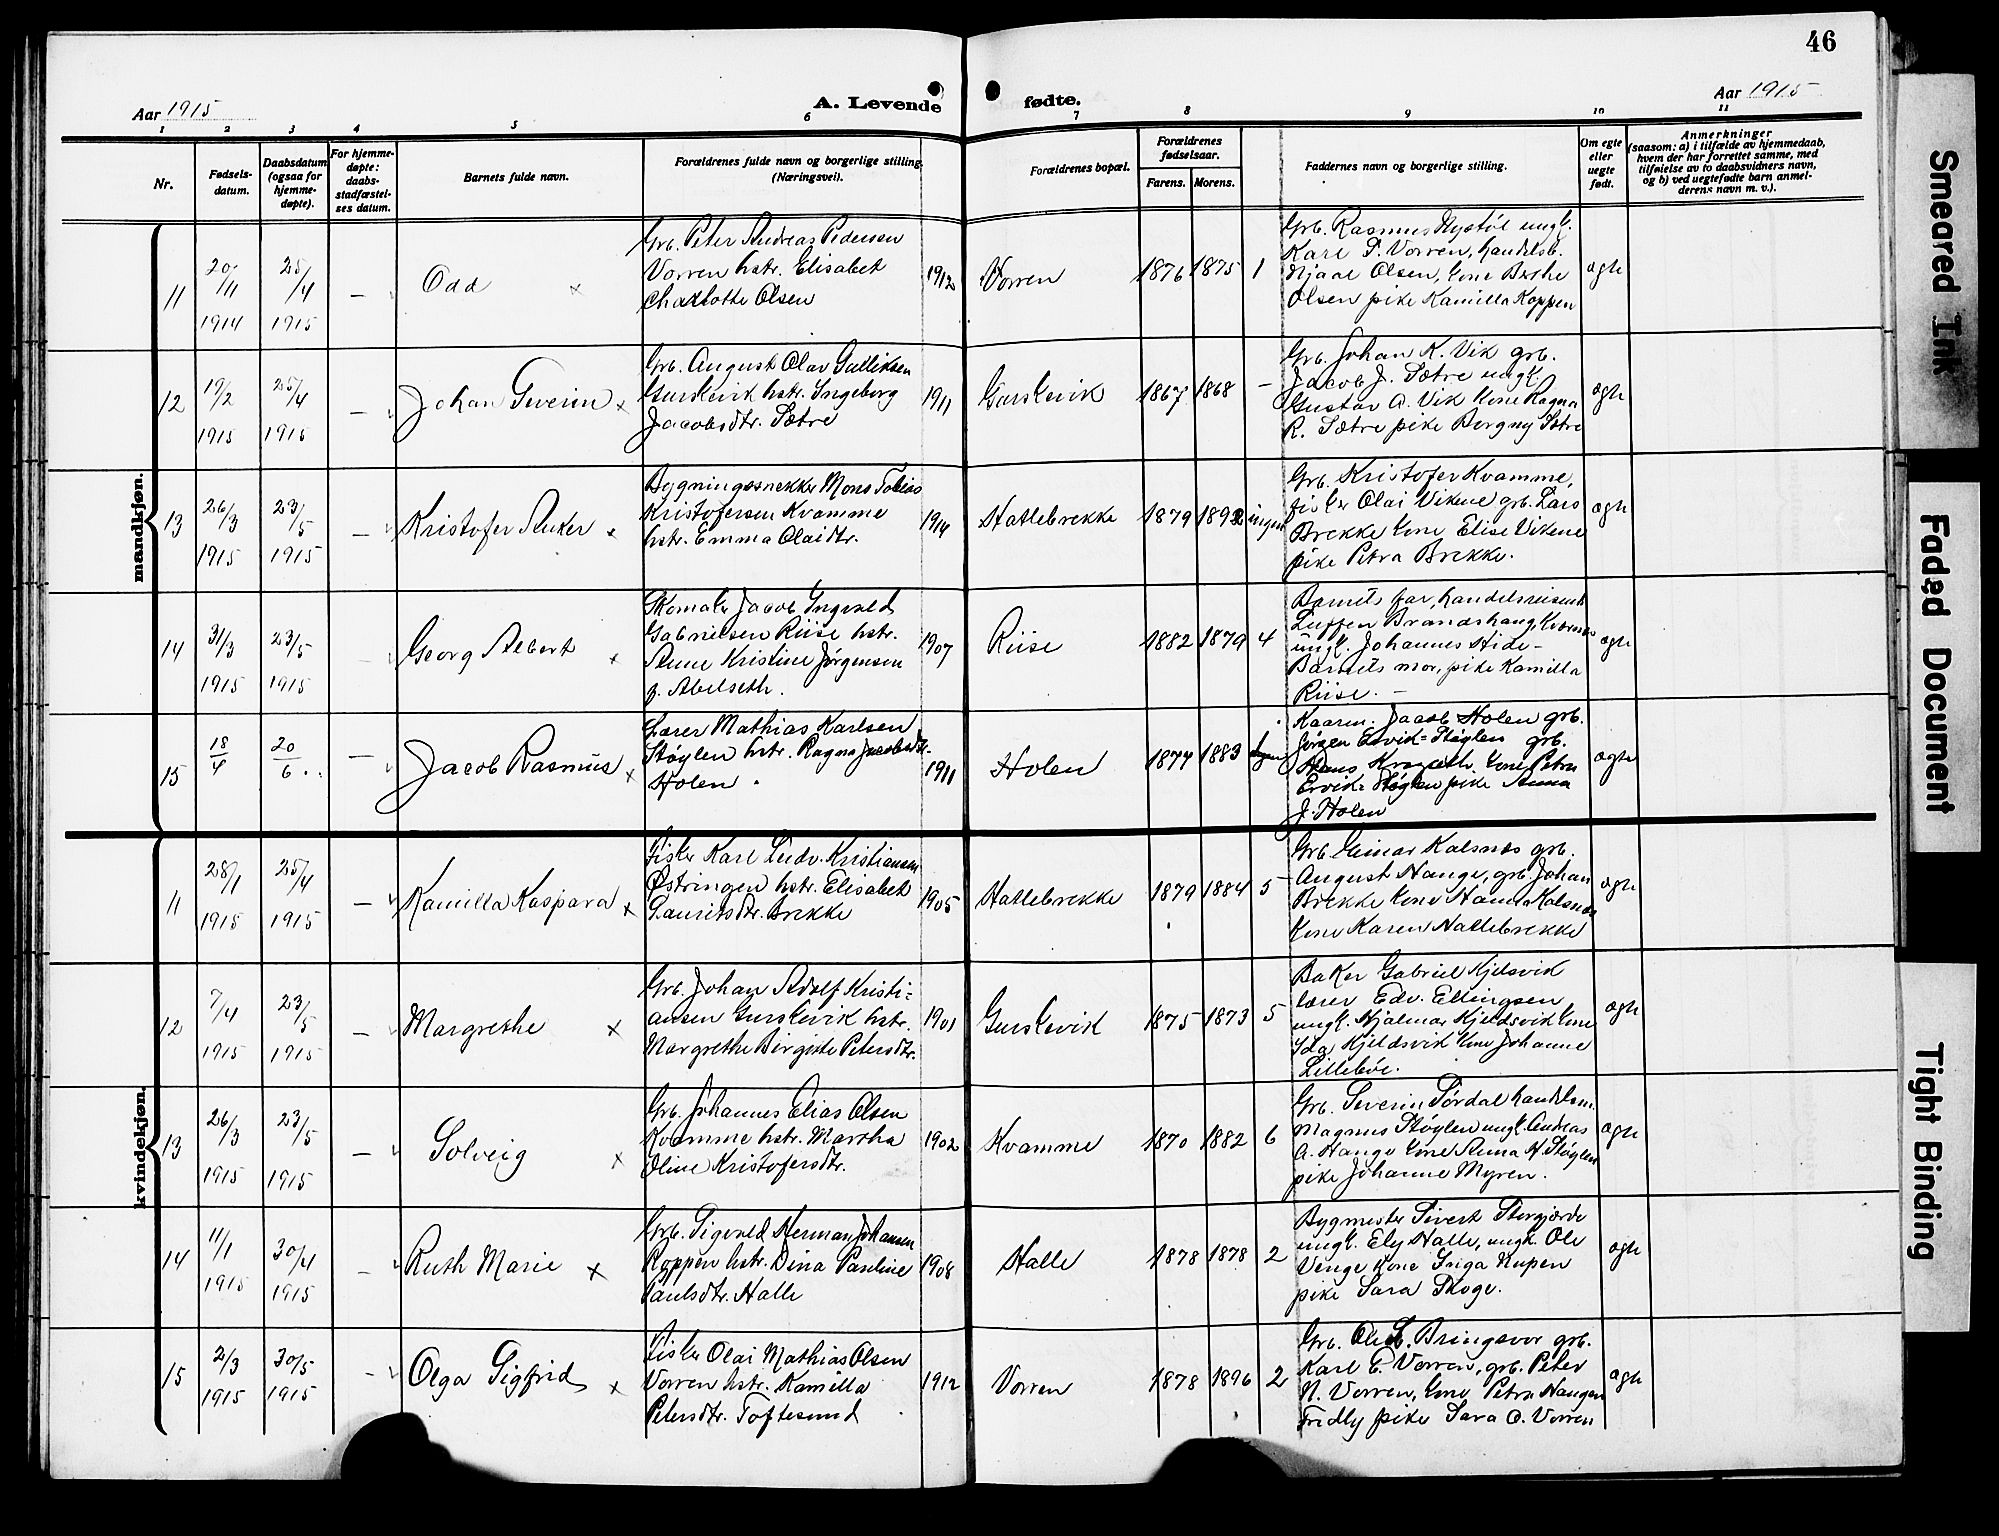 46
Aar 1915
A. Levende fødte.
Aar 1915
1 2 3 4 5 6 7 8 9 10 11
Nr.
Fødsels-
datum.
Daabsdatum
(ogsaa for
hjemme-
døpte).
For hjemme-
døpte:
daabs-
stadfæstel-
ses datum.
Barnets fulde navn.
Forældrenes fulde navn og borgerlige stilling.
(Næringsvei).
Forældrenes bopæl.
Forældrenes
fødselsaar.
Farens. Morens.
Faddernes navn og borgerlige stilling.
Om egte
eller
uegte
født.
Anmerkninger
(saasom: a) i tilfælde av hjemmedaab,
hvem der har forrettet samme, med
tilføielse av to daabsvidners navn,
og b) ved uegtefødte barn anmel-
derens navn m. v.).
mandkjøn.
11
20/11
1914
25/4
1915
—
Odd ×
Grb. Peter Andreas Pedersen
Vorren hstr. Elisabet
Charlotte Olsen
1912
Vorren
1876 1875 1
Grb. Rasmus Nystøl ungk.
Karl P. Vorren, handelsb.
Njaal Olsen, kone Berthe
Olsen pike Kamilla Koppen
ægte
12
19/2
1915
25/4
1915
—
Johan Severin ×
Grb. August Olav Gulliksen
Gurskevik hstr. Ingeborg
Jacobsdtr. Sætre
1911
Gurskevik
1867 1868 –
Grb. Johan K. Vik grb.
Jacob J. Sætre ungk.
Gustav A. Vik kone Ragna
R. Sætre pike Borgny Sætre
ægte
13
26/3
1915
23/5
1915
—
Kristofer Anker ×
Bygningssnekker Mons Tobias
Kristofersen Kvamme
hstr. Emma Olaidtr.
1914
Hallebrekke
1879 1892 ingen
Grb. Kristofer Kvamme,
fisker Olai Vikene grb. Lars
Brekke kone Elise Vikene
pike Petra Brekke.
ægte
14
31/3
1915
23/5
1915
—
Georg Albert ×
Skomaker Jacob Ingvald
Gabrielsen Riise hstr.
Anne Kristine Jørgensen
f. Abelseth.
1907
Riise
1882 1879 4
Barnets far, handelsreisende
Luffen Brandshaug,
ungk. Johannes Hide –
Barnets mor, pike Kamilla
Riise. –
ægte
15
18/4
20/6
—
Jacob Rasmus ×
Lærer Mathias Karlsen
Støylen hstr. Ragna Jacobsdtr.
Holen
1911
Holen
1877 1883 ingen
Kaarm. Jacob Holen grb.
Jørgen Ervik=Støylen grb.
Hans Kragseth, kone Petra
Ervik=Støylen pike Anna
J. Holen
ægte
kvindekjøn.
11
28/1
1915
25/4
1915
—
Kamilla Kaspara ×
Fisker Karl Ludv. Kristiansen
Østringen hstr. Elisabet
Lauritsdtr. Brekke
1905
Hallebrekke
1879 1884 5
Grb. Einar Kalsnes grb.
August Hauge, grb. Johan
Brekke kone Hanna Kalsnes
kone Karen Hallebrekke
ægte
12
7/4
1915
23/5
1915
—
Margrethe ×
Grb. Johan Adolf Kristi=
ansen Gurskevik hstr.
Margrethe Bergitte Petersdtr.
1901
Gurskevik
1875 1873 5
Baker Gabriel Kjelsvik
lærer Edv. Ellingsen
ungk. Hjalmar Kjeldsvik kone
Ida Kjeldsvik kone Johanne
Lillebøe.
ægte
13
26/3
1915
23/5
1915
—
Solveig ×
Grb. Johannes Elias Olsen
Kvamme hstr. Martha
Oline Kristofersdtr.
1902
Kvamme
1870 1882 6
Grb. Severin Sørdal handelsm.
Magnus Støylen ungk. Andreas
A. Hauge kone Anna H. Støylen
pike Johanne Myren.
ægte
14
11/1
1915
30/4
1915
—
Ruth Marie ×
Grb. Sigvald Herman Johansen
Koppen hstr. Dina Pauline
Paulsdtr. Halle
1908
Halle
1878 1878 2
Bygmester Sivert Storgjørde
ungk. Ely Halle, ungk. Ole
Venge kone Inga Kupen
pike Sara Skoge.
ægte
15
2/3
1915
30/5
1915
—
Olga Sigfrid ×
Fisker Olai Mathias Olsen
Vorren hstr. Kamilla
Petersdtr. Toftesund
1912
Vorren
1878 1896 2
Grb. Ole S. Bringsvor grb.
Karl E. Vorren, grb. Peter
N. Vorren, kone Petra Haugen
Fridly pike Sara O. Vorren
ægte
Smeared Ink
Faded Document
Tight Binding